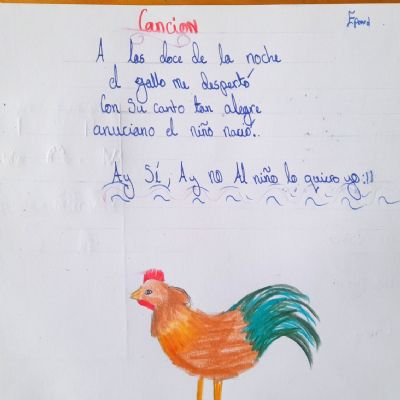 Cancion
A las doce de la noche
el gallo me despertó
Con Su canto tan alegre
anuciano el niño nació..
Ay Sí, Ay no Al niño lo quiero yo:))